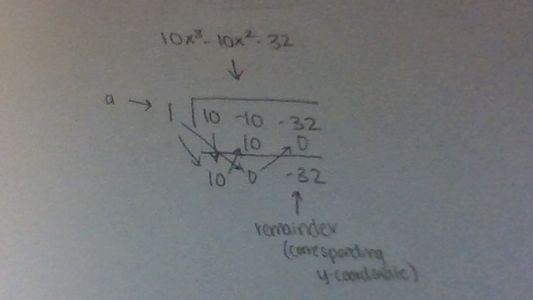 10x³-10x²-32
a → 1 10 -10 -32
10 0
10 0 -32
remainder
(corresponding
y-coordinate)